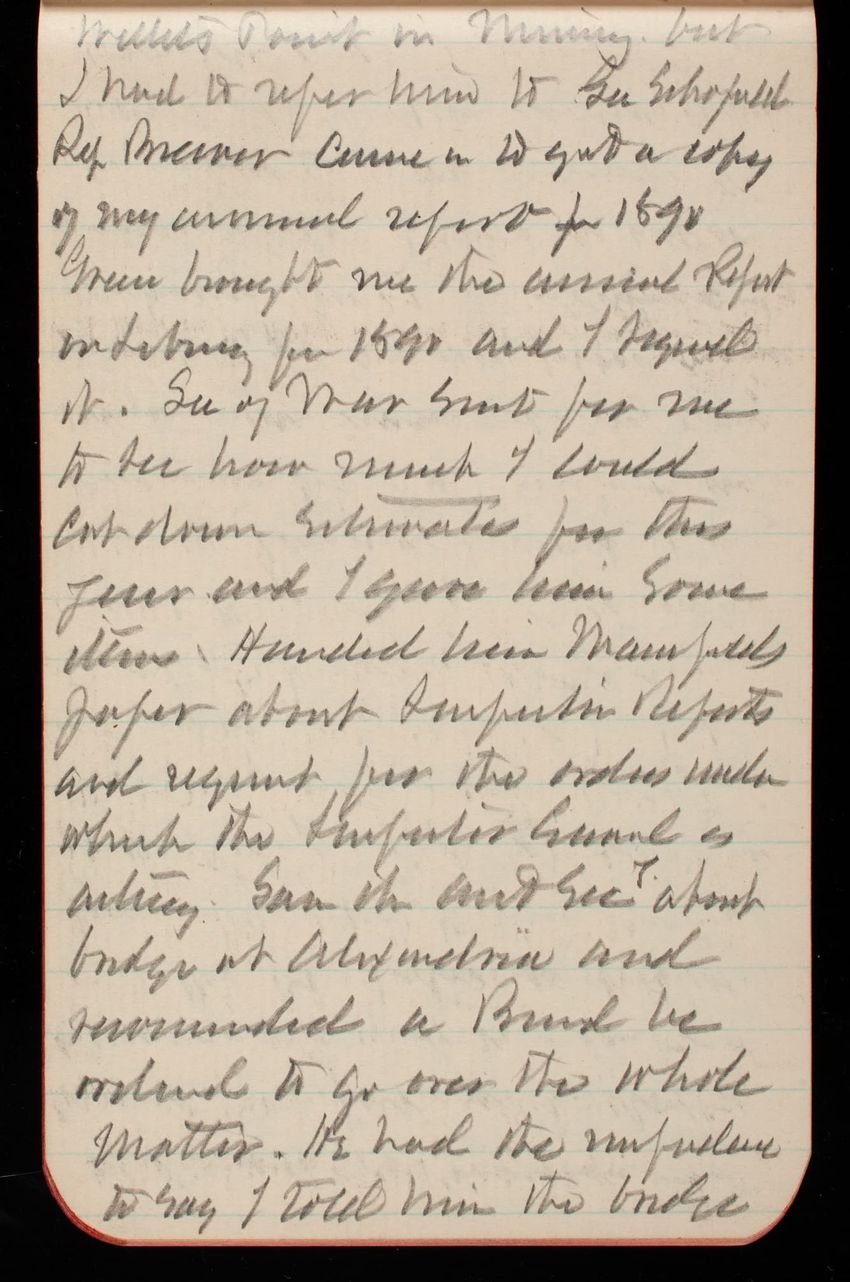 Willets Point in Mining. but
I had to refer him to Gen Schofield
Rep Brewer Came in to get a copy
of my annual report for 1890
Green brought me the annual Report
on Library for 1890 and I signed
it. Sec of War Sent for me
to see how much I could
Cut down Estimates for this
year and I gave him Some
items. Handed him Mansfields
paper about Inspection Reports
and request for the orders under
which the Inspector General is
acting. Saw the Asst Secy about
bridge at Alexandria and
recommended a Board be
ordered to go over the whole
Matter. He had the impudence
to say I told him the bridge